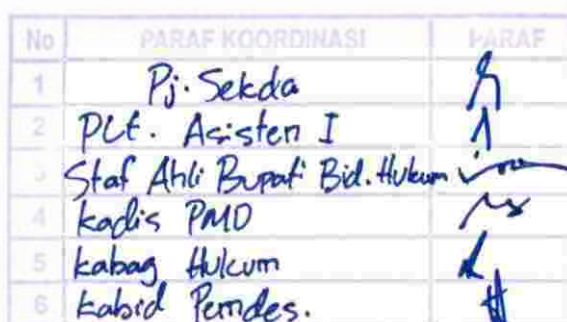 No PARAF KOORDINASI PARAF
1 Pj. Sekda
2 Plt. Asisten I
3 Staf Ahli Bupati Bid. Hukum
4 kadis PMD
5 kabag Hukum
6 kabid Pemdes.